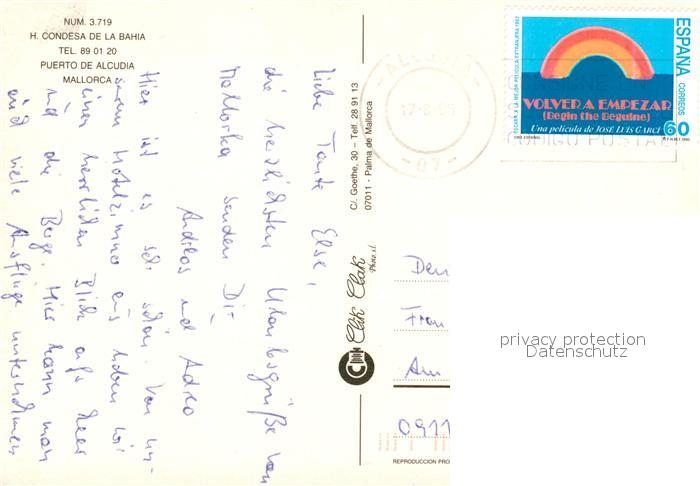 NUM. 3.719
H. CONDESA DE LA BAHIA
TEL. 89 01 20
PUERTO DE ALCUDIA
MALLORCA
Liebe Tante Else,
die herzlichsten Urlaubsgrüße von
Mallorka senden Dir
und
Hier ist es sehr schön. Von un-
serem Hotelzimmer aus haben wir
einen herrlichen Blick aufs Meer
und die Berge. Hier kann man
und viele Ausflüge unternehmen
C/. Goethe, 30 – Telf. 28 91 13
07011 - Palma de Mallorca
Clik Clak
Photo s.l.
ALCUDIA
- 07 -
CONSIGNE EN
CODIGO POSTAL
OSCAR A LA MEJOR PELICULA EXTRANJERA 1982
VOLVER A EMPEZAR
(Begin the Beguine)
Una película de JOSÉ LUIS GARCI
ESPAÑA
CORREOS
60
Frau
Am
0911
REPRODUCCION PRO
privacy protection
Datenschutz